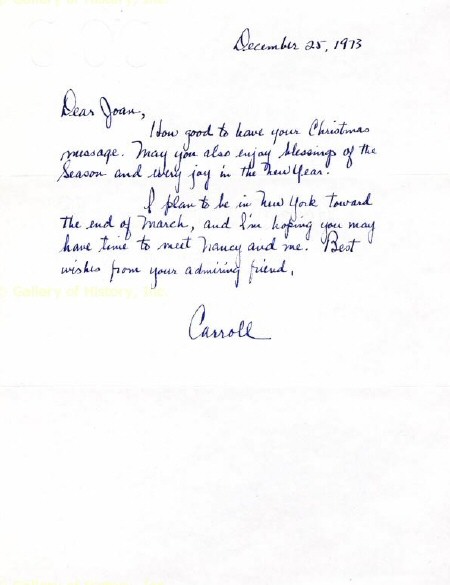 Gallery of History, Inc.
December 25, 1973
Dear Joan,
How good to have your Christmas
message. May you also enjoy blessings of the
Season and every joy in the New Year.
I plan to be in New York toward
the end of March, and I'm hoping you may
have time to meet Nancy and me. Best
wishes from your admiring friend,
© Gallery of History, Inc.
Carroll